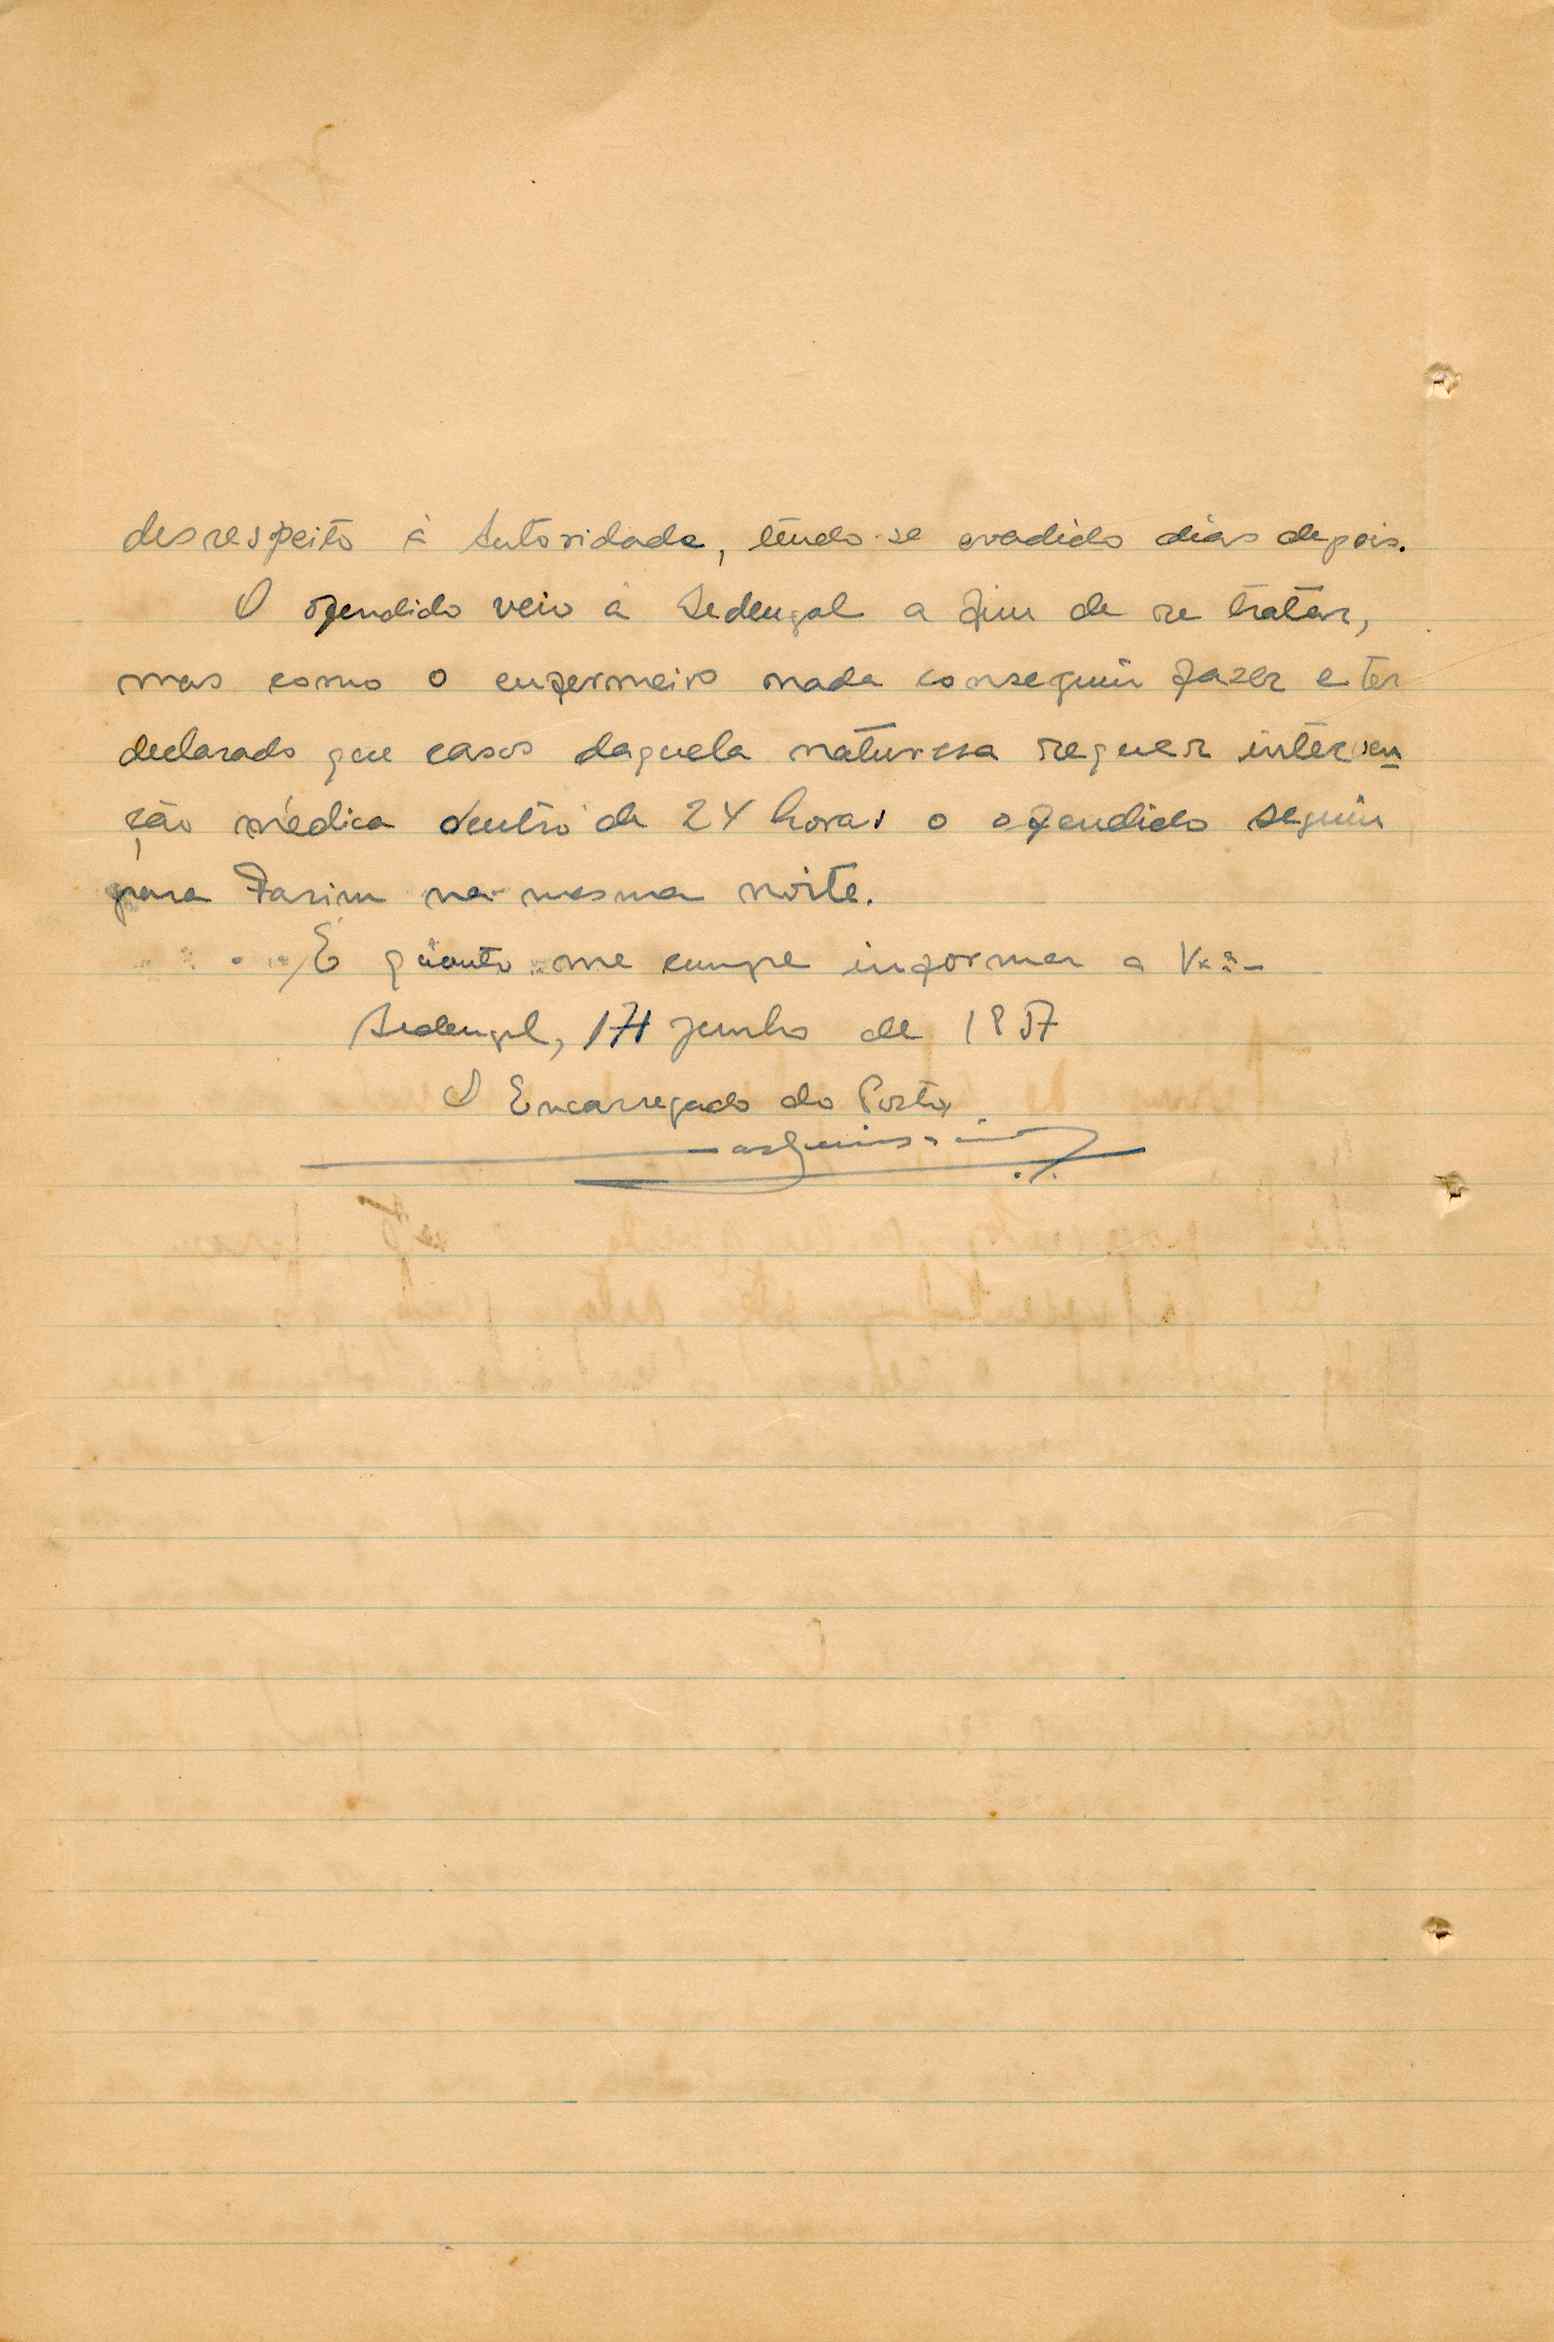 desrespeito à Autoridade, tendo-se evadido dias depois.
O ofendido veio a Sedengal a fim de se tratar,
mas como o enfermeiro nada conseguiu fazer e ter
declarado que casos daquela naturesa requer interven
ção médica dentro de 24 horas o ofendido seguiu
para Farim na mesma noite.
É quanto me cumpre informar a Vxª-
Sedengal, 17 junho de 1957
O Encarregado do Posto